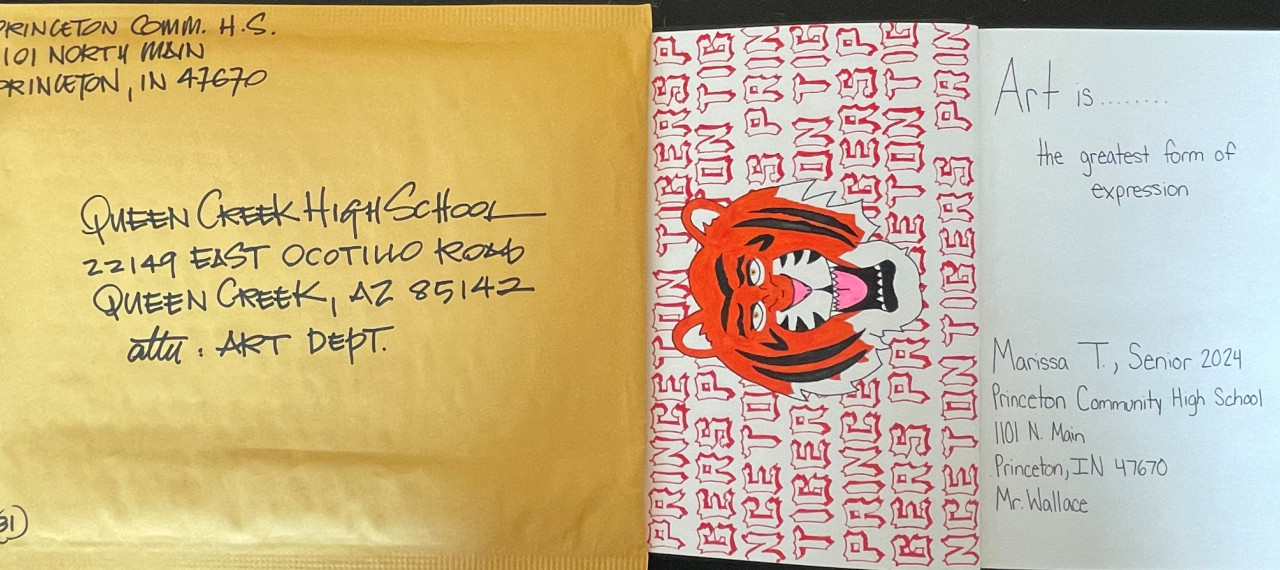 PRINCETON COMM. H.S.
1101 NORTH MAIN
PRINCETON, IN 47670
QUEEN CREEK HIGH SCHOOL
22149 EAST OCOTILLO ROAD
QUEEN CREEK, AZ 85142
attn: ART DEPT.
31
PRINCETON TIGERS P
GERS PRINCETON TIG
NCETON TIGERS PRIN
TIGERS PRINCETON TI
PRINCETON TIGERS P
GERS PRINCETON TIG
NCETON TIGERS PRIN
Art is........
the greatest form of
expression
Marissa T., Senior 2024
Princeton Community High School
1101 N. Main
Princeton, IN 47670
Mr. Wallace